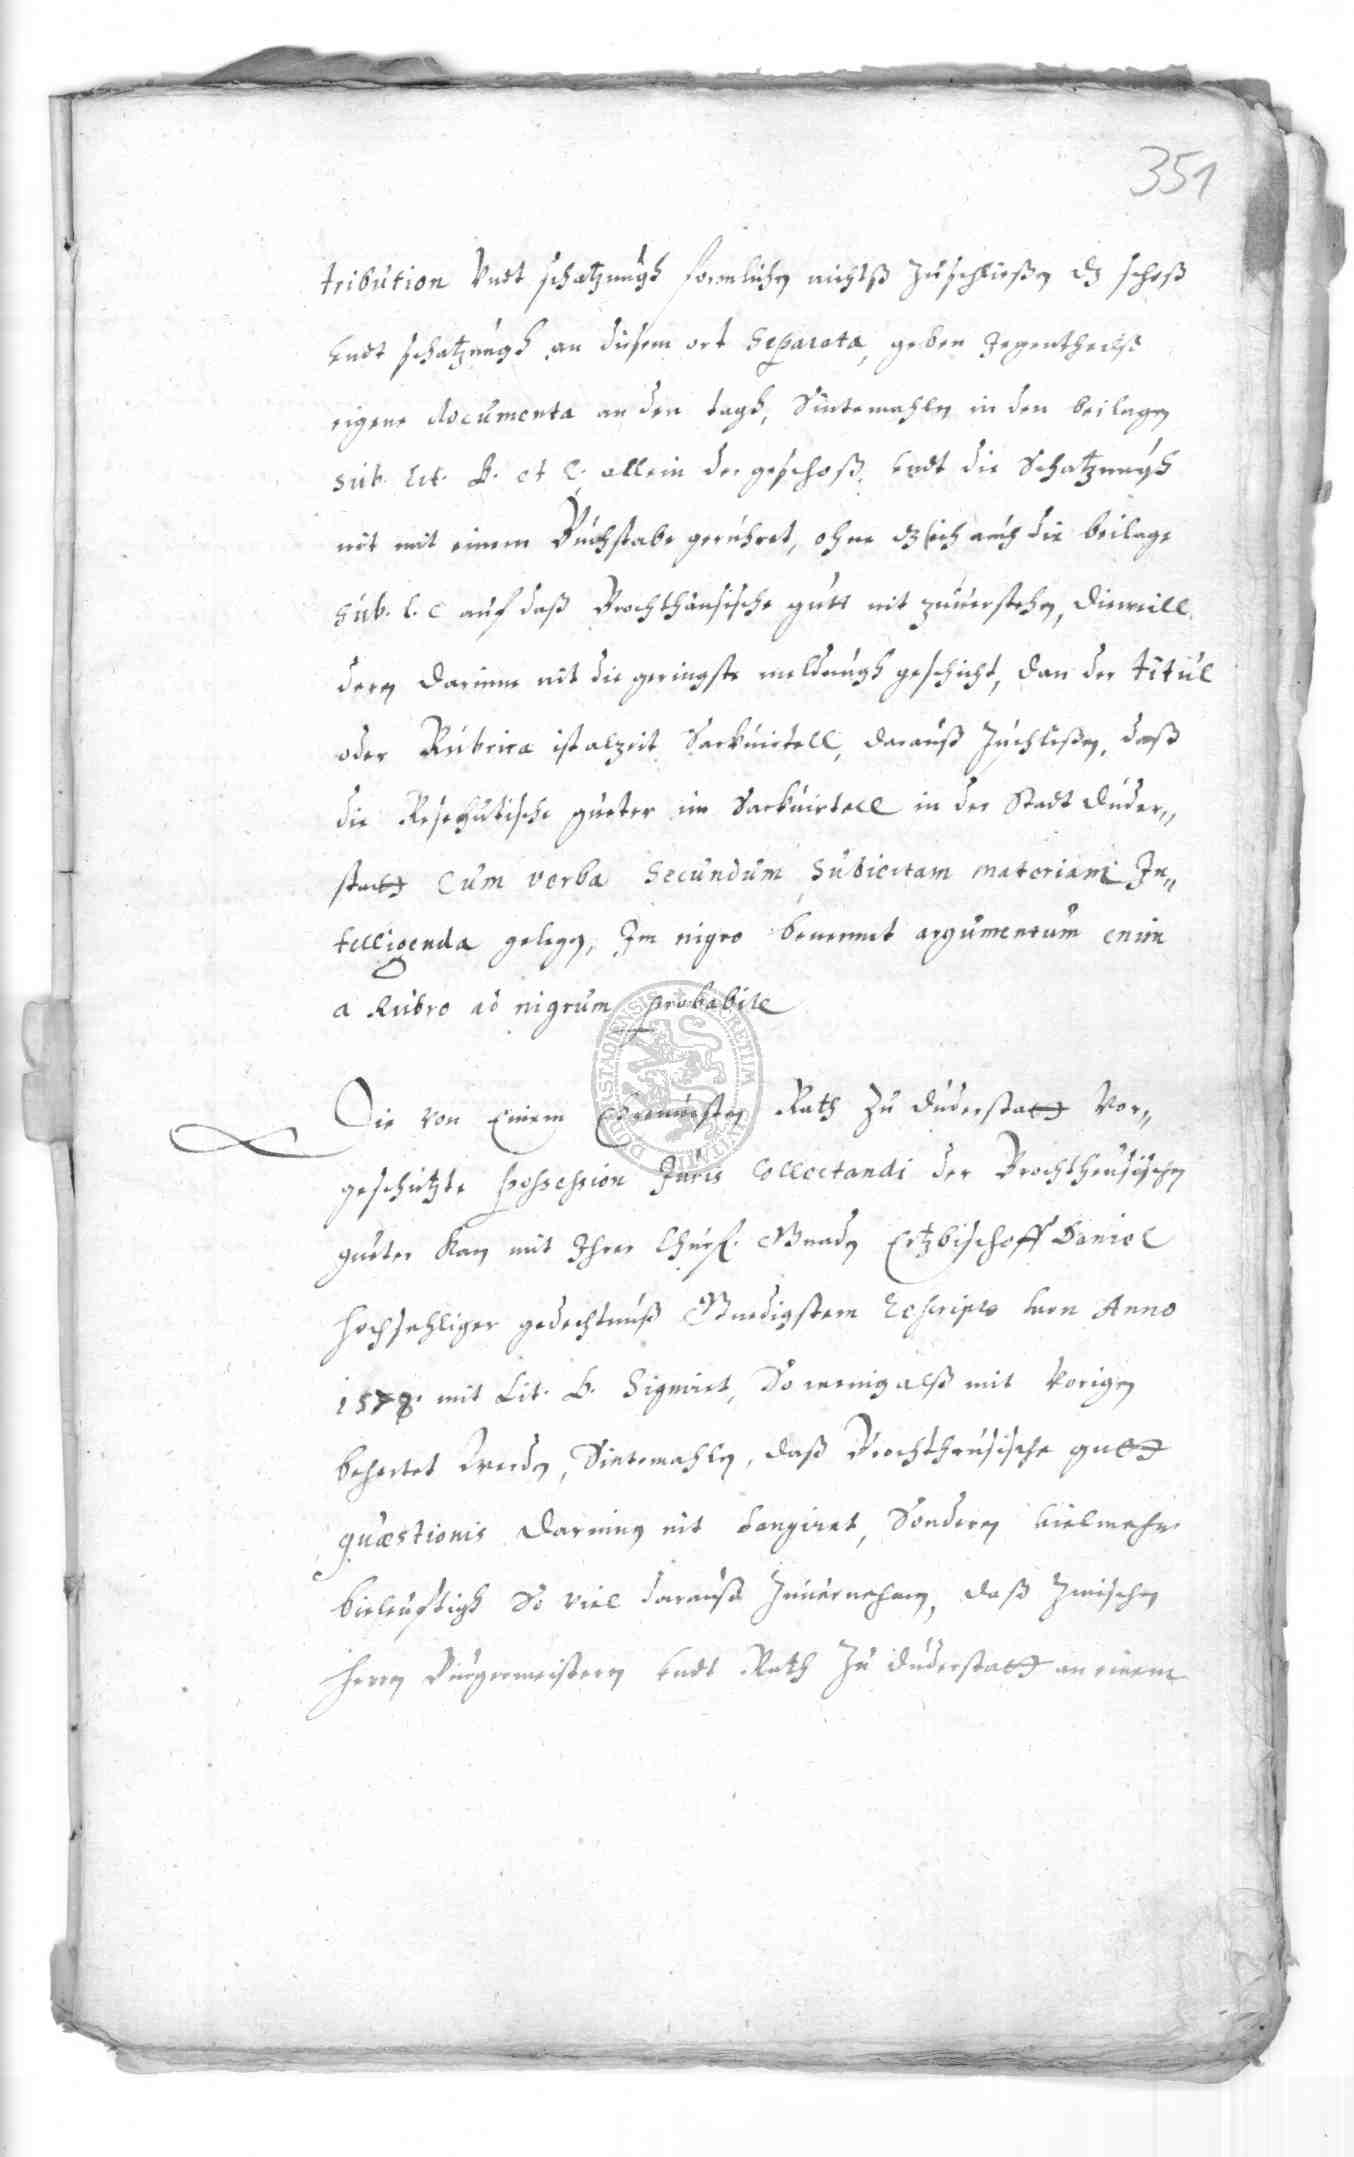 351
tribution Vndt schatzungh formlichen nichtß Zuschließen dz schoß
vndt schatzungh an diesem ort Separata, geben Jegentheilß
eigene documenta an den tagh, Sintemahln in den beilagen
sub. lit. B. et C. allein der geschoß, vndt die Schatzungh
nit mit einem Buchstabe gerühret, ohne dz sich auch die beilage
sub. l. C auf daß Brochthausische gutt nit zuuerstehen, dieweill
deren darinne nit die geringste meldungh geschicht, dan der titul
oder Rubrica ist alzeit Sackuirtell, darauß Zuschlißen, daß
die gueter im Sackuirtell in der Stadt Duder„
statt Cum verba Secundum Subiectam materiam In„
telligenda gelegen, Im nigro benennt argumentum enim
a Rubro ad nigrum probabile
Die von Einem Ehrenuesten Rath Zu Duderstatt Vor„
geschützte possession Juris Collectandi der Brochtheusischen
gueter Kan mit Ihrer Churf. Gnaden Ertzbischoff Daniel
hochsehliger gedechtnuß Gnedigstem Rescripto Anno
1578. mit Lit. B. Signirt, So wenig alß mit Vorigen
behertet werden, Sintemahln, daß Brochtheusische gutt
quæstionis darinnen nit tangiret, Sondern vielmehr
bieleuftigh So viel darauß Zuuernehmen, daß Zwischen
Herrn Burgermeistern vndt Rath Zu Duderstatt an einem